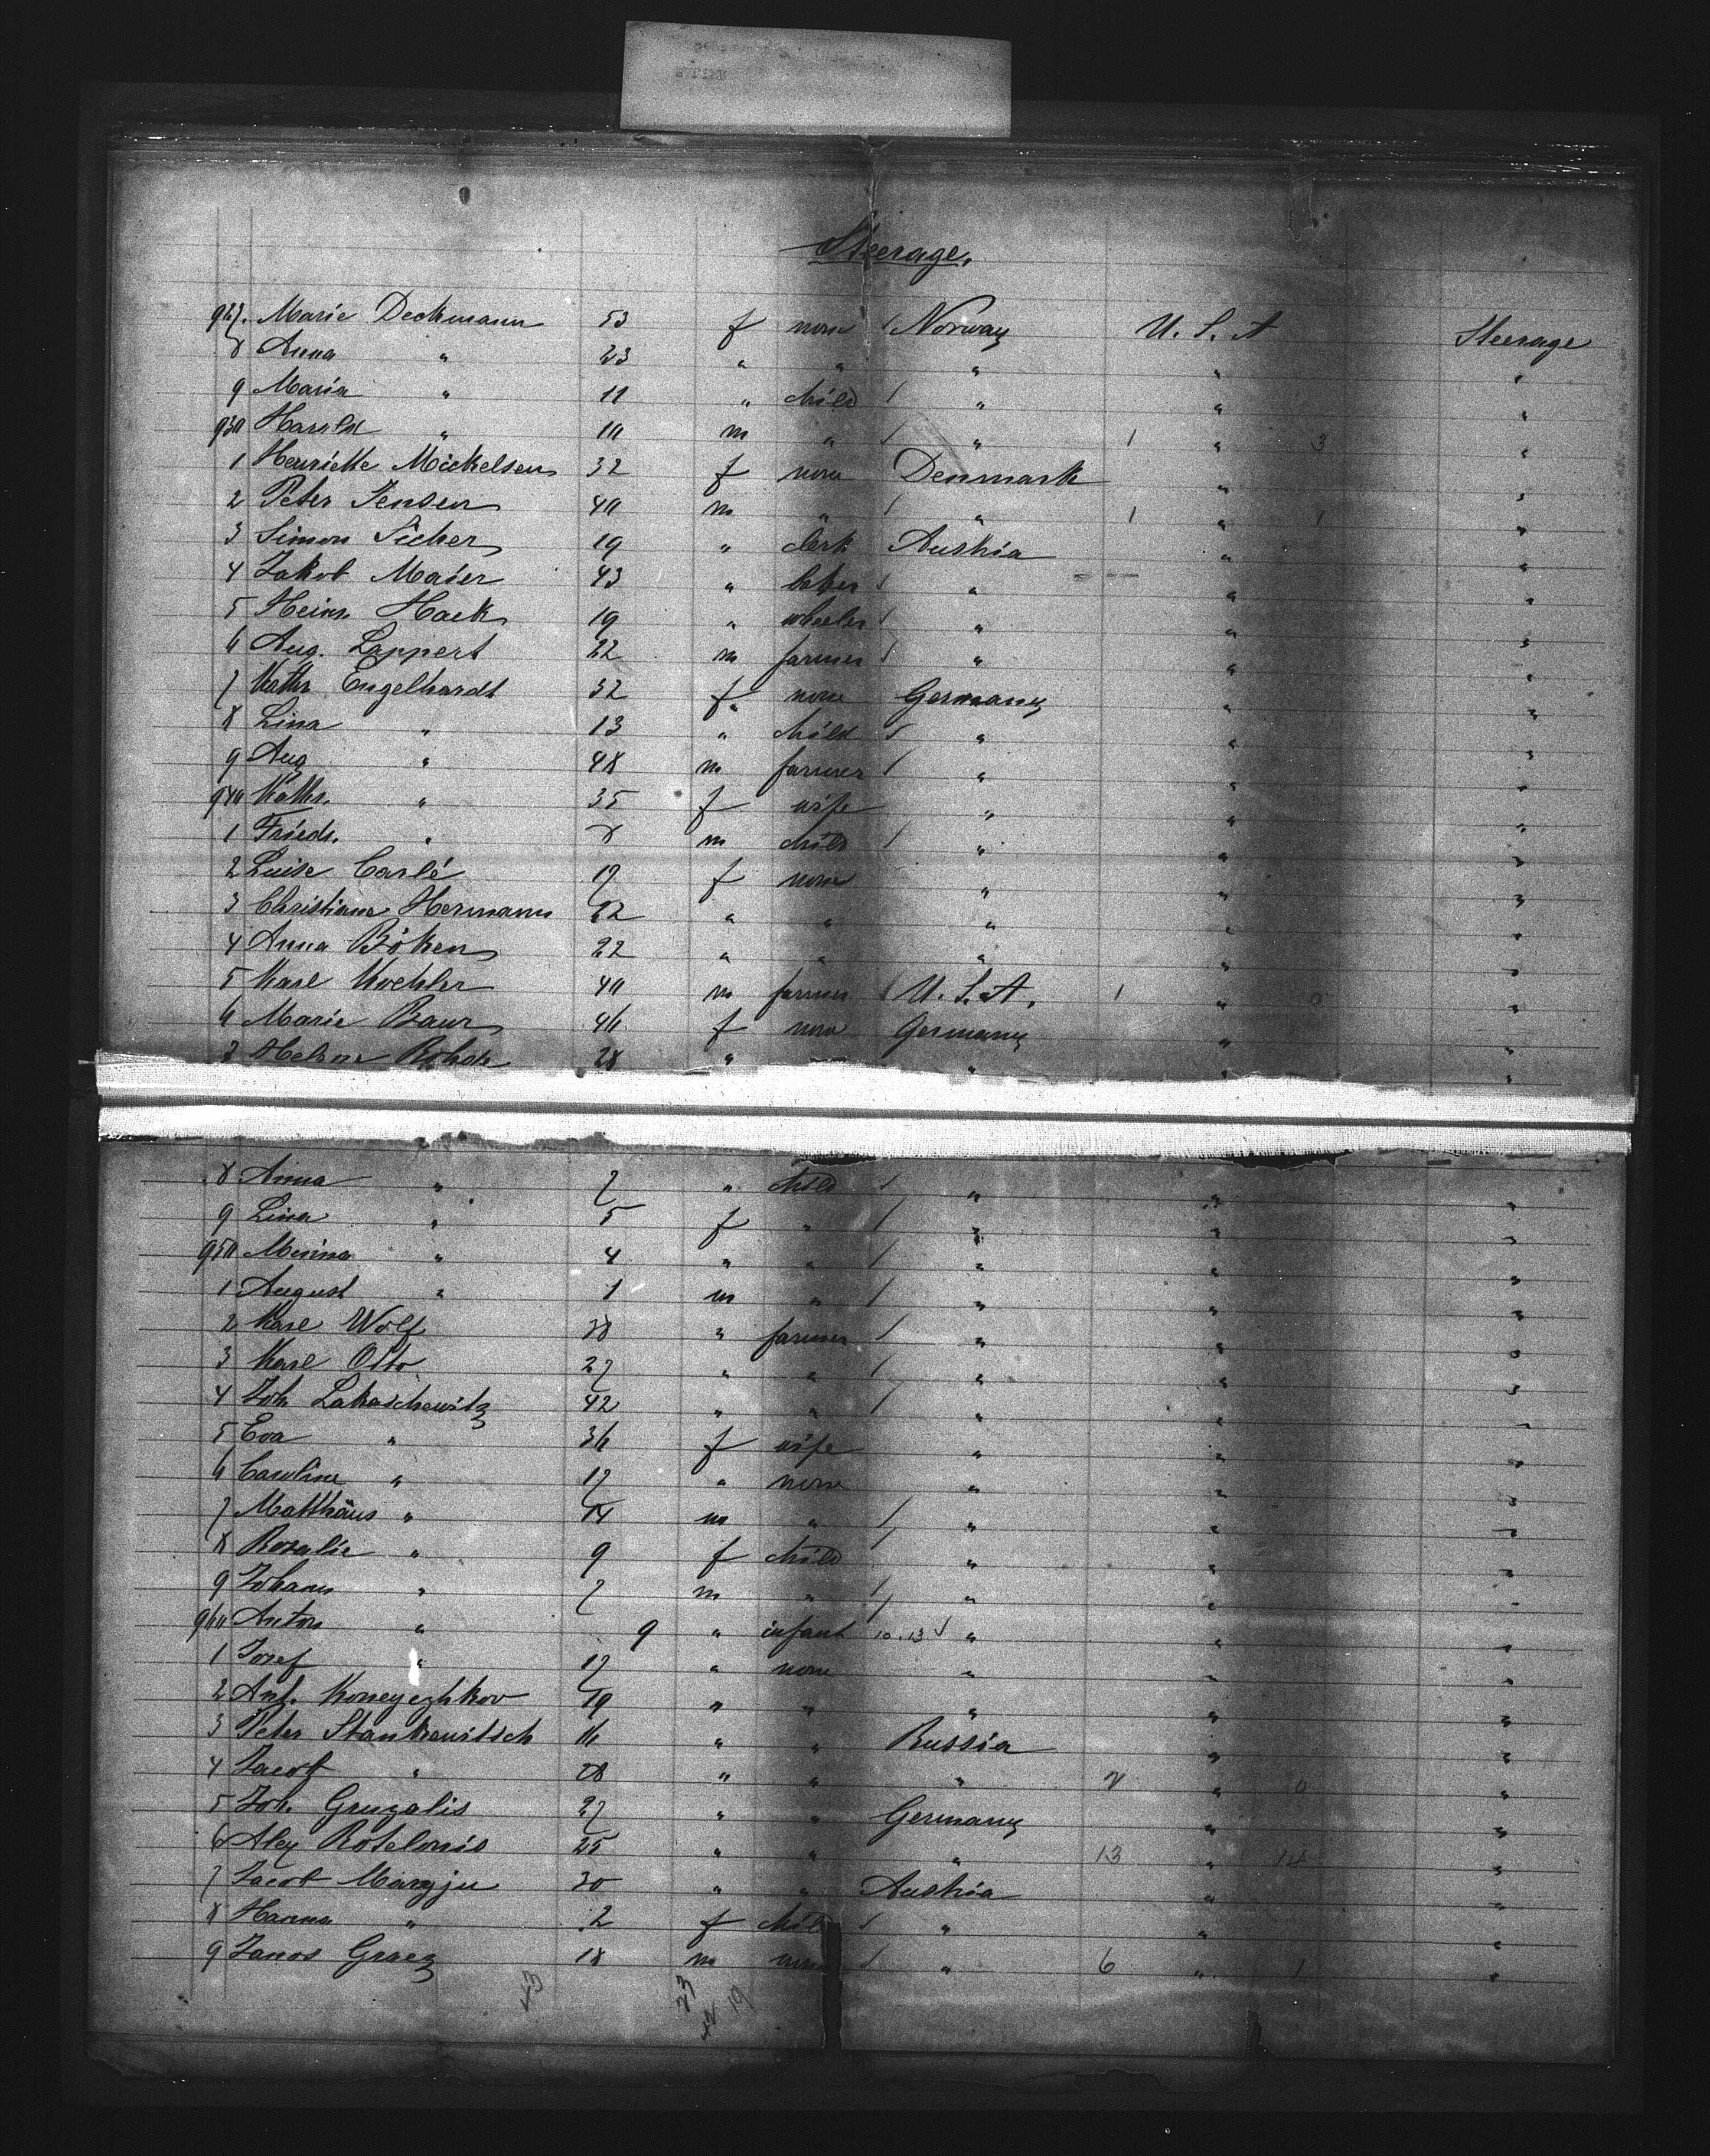 Steerage.
927. Marie Deckmann 53 f none / Norway U. S. A Steerage
8 Anna " 23 " " " " "
9 Maria " 11 " child / " " "
930 Harold " 10 m " / " 1 " 3 "
1 Henriette Mickelsen 32 f none Denmark " "
2 Peter Jensen 40 m " / " 1 " 1 "
3 Simon Sicher 19 " clerk Austria " "
4 Jakob Maier 43 " baker / " " "
5 Heinr. Hack 19 " wheeler / " " "
6 Aug. Lappert 22 m farmer / " " "
7 Kathr Engelhardt 32 f none Germany " "
8 Lina " 13 " child / " " "
9 Aug " 48 m farmer / " " "
940 Kathr. " 35 f wife " " "
1 Friedr. " 8 m child / " " "
2 Luise Carlé 17 f none " " "
3 Christiane Hermann 22 " " " " "
4 Anna Böken 22 " " " " "
5 Karl Koehler 40 m farmer / U. S. A. 1 " 0 "
6 Marie Baur 46 f none Germany " "
7 Helene Rohde 28 " " " "
8 Anna " 7 " child / " " "
9 Lina " 5 f " / " " "
950 Minna " 4 " " / " " "
1 August " 1 m " / " " "
2 Karl Wolf 28 " farmer / " " "
3 Karl Otto 27 " " / " " "
4 Joh Lakaschewitz 42 " " / " " "
5 Eva " 36 f wife " " "
6 Caroline " 17 " none " " "
7 Matthäus " 14 m " / " " "
8 Rozalie " 9 f child / " " "
9 Johann " 7 m " / " " "
960 Anton " 9 " infant 10.13 √ " " "
1 Josef " 17 " none " " "
2 Ant. Koneyczhkov 19 " " " " "
3 Peter Stankewitsch 16 " " Russia " "
4 Jacob " 28 " " " 2 " 0 "
5 Joh. Gruzalis 27 " " Germany " "
6 Alex Rotelonis 25 " " " 13 " 14 "
7 Jacob Manzju 30 " " Austria " "
8 Hanna " 2 f child / " " "
9 Janos Gracz 18 m none / " 6 " 1 "
43 23 19
42